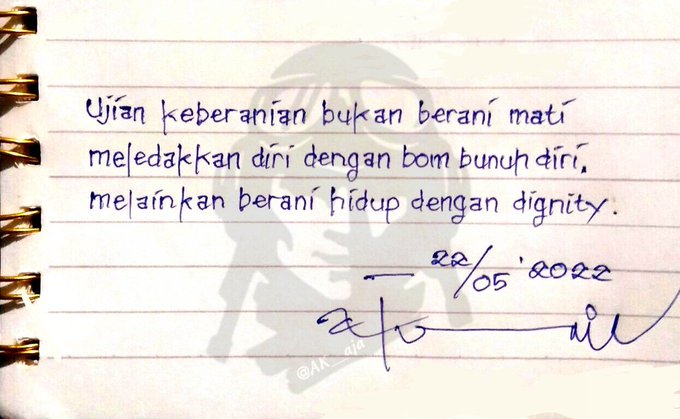 Ujian keberanian bukan berani mati
meledakkan diri dengan bom bunuh diri,
melainkan berani hidup dengan dignity.
— 22/05 '2022
@AK__aja